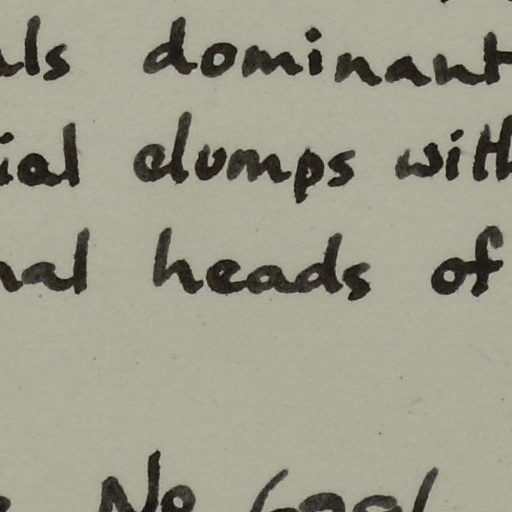 als dominant
ial clumps with
nal heads of
No